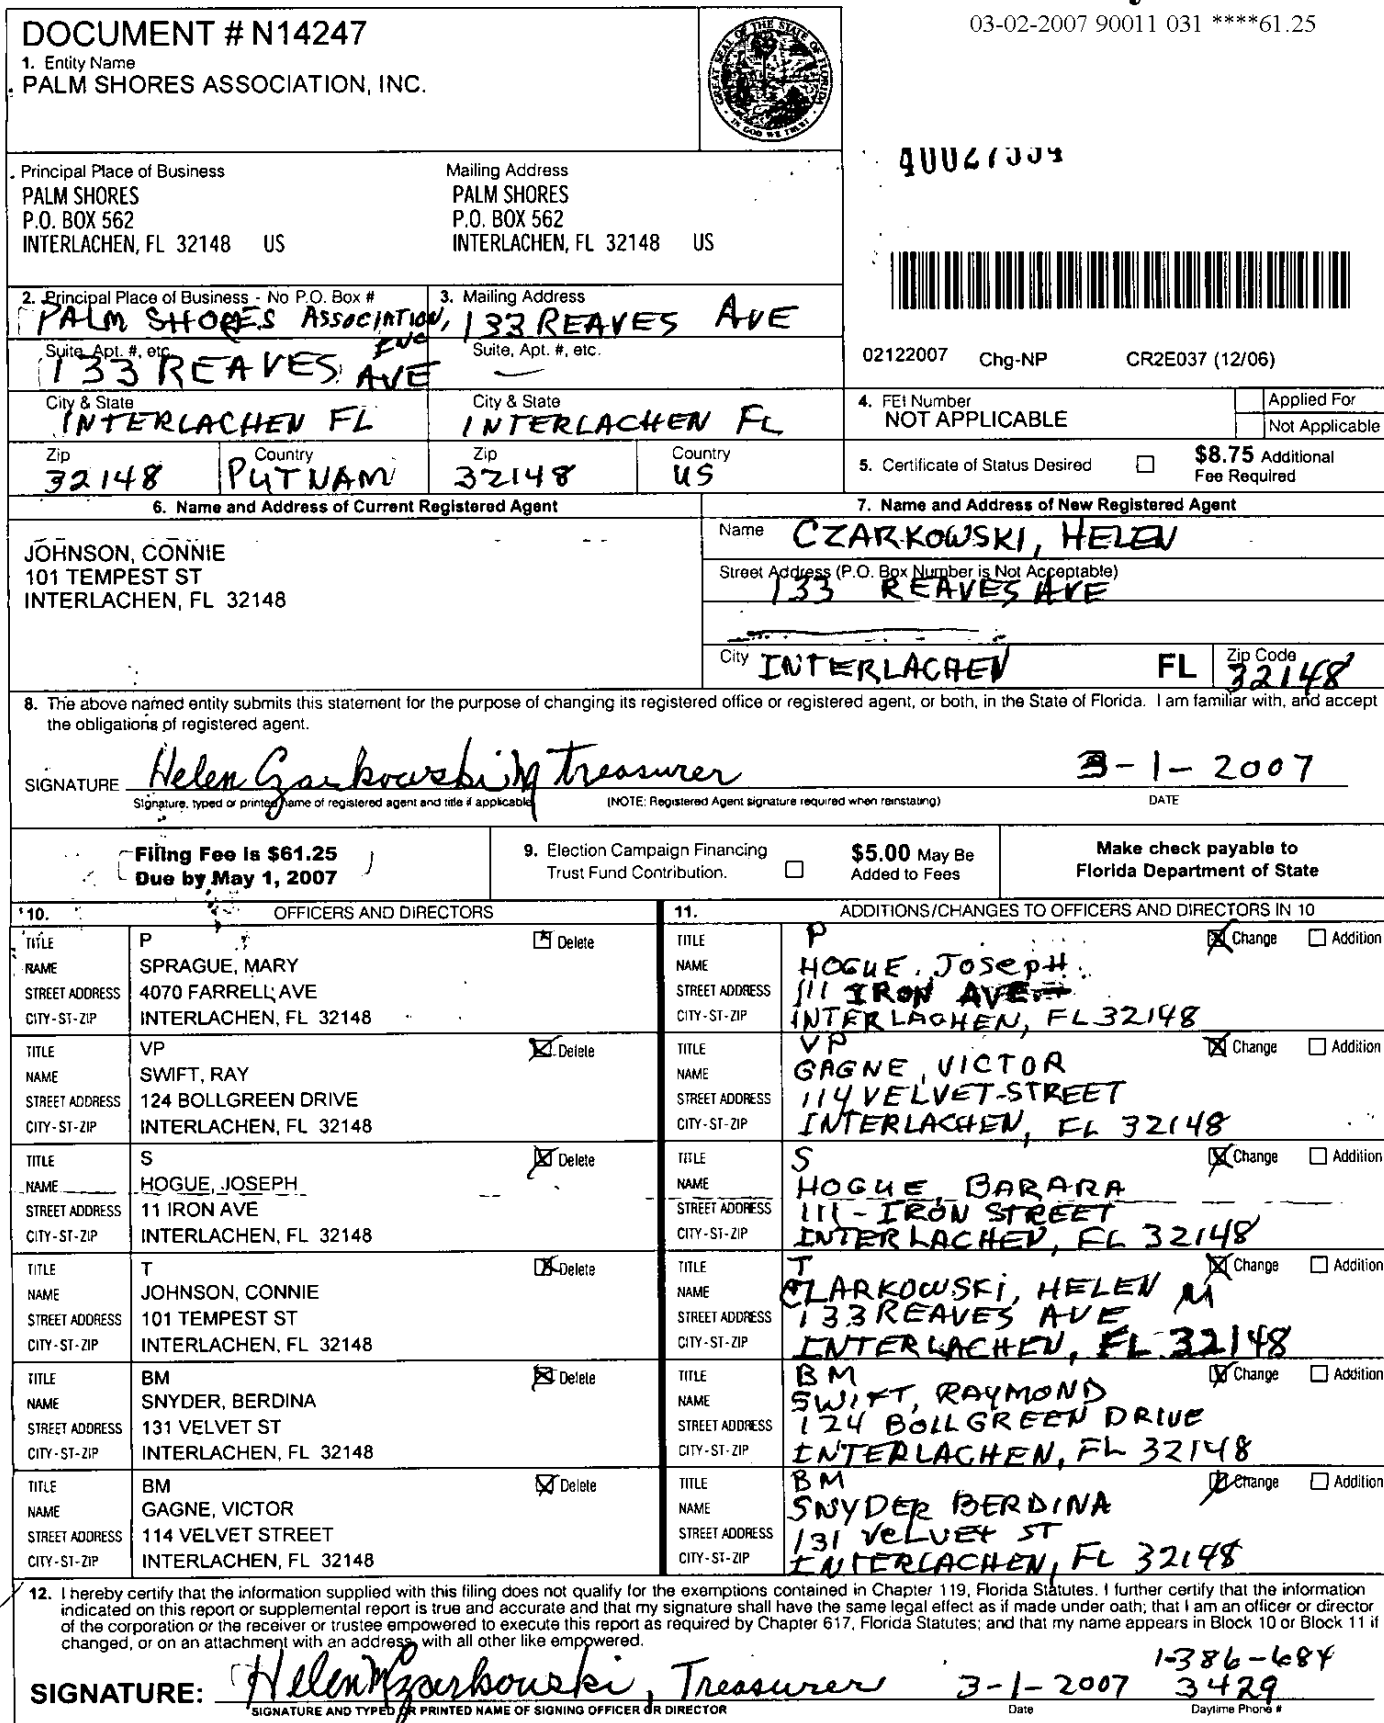 03-02-2007 90011 031 ****61.25
DOCUMENT # N14247
1. Entity Name
PALM SHORES ASSOCIATION, INC.
GREAT SEAL OF THE STATE OF FLORIDA
IN GOD WE TRUST
Principal Place of Business
PALM SHORES
P.O. BOX 562
INTERLACHEN, FL 32148 US
Mailing Address
PALM SHORES
P.O. BOX 562
INTERLACHEN, FL 32148 US
2. Principal Place of Business - No P.O. Box #
PALM SHORES ASSOCIATION, INC
Suite, Apt. #, etc.
133 REAVES AVE
City & State
INTERLACHEN FL
Zip
32148
Country
PUTNAM
3. Mailing Address
133 REAVES AVE
Suite, Apt. #, etc.
City & State
INTERLACHEN FL
Zip
32148
Country
US
02122007 Chg-NP CR2E037 (12/06)
4. FEI Number
NOT APPLICABLE
Applied For
Not Applicable
5. Certificate of Status Desired
$8.75 Additional
Fee Required
6. Name and Address of Current Registered Agent
JOHNSON, CONNIE
101 TEMPEST ST
INTERLACHEN, FL 32148
7. Name and Address of New Registered Agent
Name CZARKOWSKI, HELEN
Street Address (P.O. Box Number is Not Acceptable)
133 REAVES AVE
City INTERLACHEN FL Zip Code 32148
8. The above named entity submits this statement for the purpose of changing its registered office or registered agent, or both, in the State of Florida. I am familiar with, and accept
the obligations of registered agent.
SIGNATURE Helen Czarkowski M treasurer 3-1-2007
Signature, typed or printed name of registered agent and title if applicable (NOTE: Registered Agent signature required when reinstating) DATE
Filing Fee is $61.25
Due by May 1, 2007
9. Election Campaign Financing
Trust Fund Contribution.
$5.00 May Be
Added to Fees
Make check payable to
Florida Department of State
10. OFFICERS AND DIRECTORS
11. ADDITIONS/CHANGES TO OFFICERS AND DIRECTORS IN 10
TITLE P Delete
NAME SPRAGUE, MARY
STREET ADDRESS 4070 FARRELL AVE
CITY-ST-ZIP INTERLACHEN, FL 32148
TITLE P Change Addition
NAME HOGUE, JOSEPH
STREET ADDRESS 111 IRON AVE
CITY-ST-ZIP INTERLACHEN, FL 32148
TITLE VP Delete
NAME SWIFT, RAY
STREET ADDRESS 124 BOLLGREEN DRIVE
CITY-ST-ZIP INTERLACHEN, FL 32148
TITLE VP Change Addition
NAME GAGNE, VICTOR
STREET ADDRESS 114 VELVET-STREET
CITY-ST-ZIP INTERLACHEN, FL 32148
TITLE S Delete
NAME HOGUE, JOSEPH
STREET ADDRESS 11 IRON AVE
CITY-ST-ZIP INTERLACHEN, FL 32148
TITLE S Change Addition
NAME HOGUE, BARARA
STREET ADDRESS 111 - IRON STREET
CITY-ST-ZIP INTERLACHEN, FL 32148
TITLE T Delete
NAME JOHNSON, CONNIE
STREET ADDRESS 101 TEMPEST ST
CITY-ST-ZIP INTERLACHEN, FL 32148
TITLE T Change Addition
NAME CZARKOWSKI, HELEN M
STREET ADDRESS 133 REAVES AVE
CITY-ST-ZIP INTERLACHEN, FL 32148
TITLE BM Delete
NAME SNYDER, BERDINA
STREET ADDRESS 131 VELVET ST
CITY-ST-ZIP INTERLACHEN, FL 32148
TITLE BM Change Addition
NAME SWIFT, RAYMOND
STREET ADDRESS 124 BOLLGREEN DRIVE
CITY-ST-ZIP INTERLACHEN, FL 32148
TITLE BM Delete
NAME GAGNE, VICTOR
STREET ADDRESS 114 VELVET STREET
CITY-ST-ZIP INTERLACHEN, FL 32148
TITLE BM Change Addition
NAME SNYDER BERDINA
STREET ADDRESS 131 VELVET ST
CITY-ST-ZIP INTERLACHEN, FL 32148
12. I hereby certify that the information supplied with this filing does not qualify for the exemptions contained in Chapter 119, Florida Statutes. I further certify that the information
indicated on this report or supplemental report is true and accurate and that my signature shall have the same legal effect as if made under oath; that I am an officer or director
of the corporation or the receiver or trustee empowered to execute this report as required by Chapter 617, Florida Statutes; and that my name appears in Block 10 or Block 11 if
changed, or on an attachment with an address, with all other like empowered.
SIGNATURE: Helen M Czarkowski, Treasurer 3-1-2007 1-386-684
3429
SIGNATURE AND TYPED OR PRINTED NAME OF SIGNING OFFICER OR DIRECTOR Date Daytime Phone #